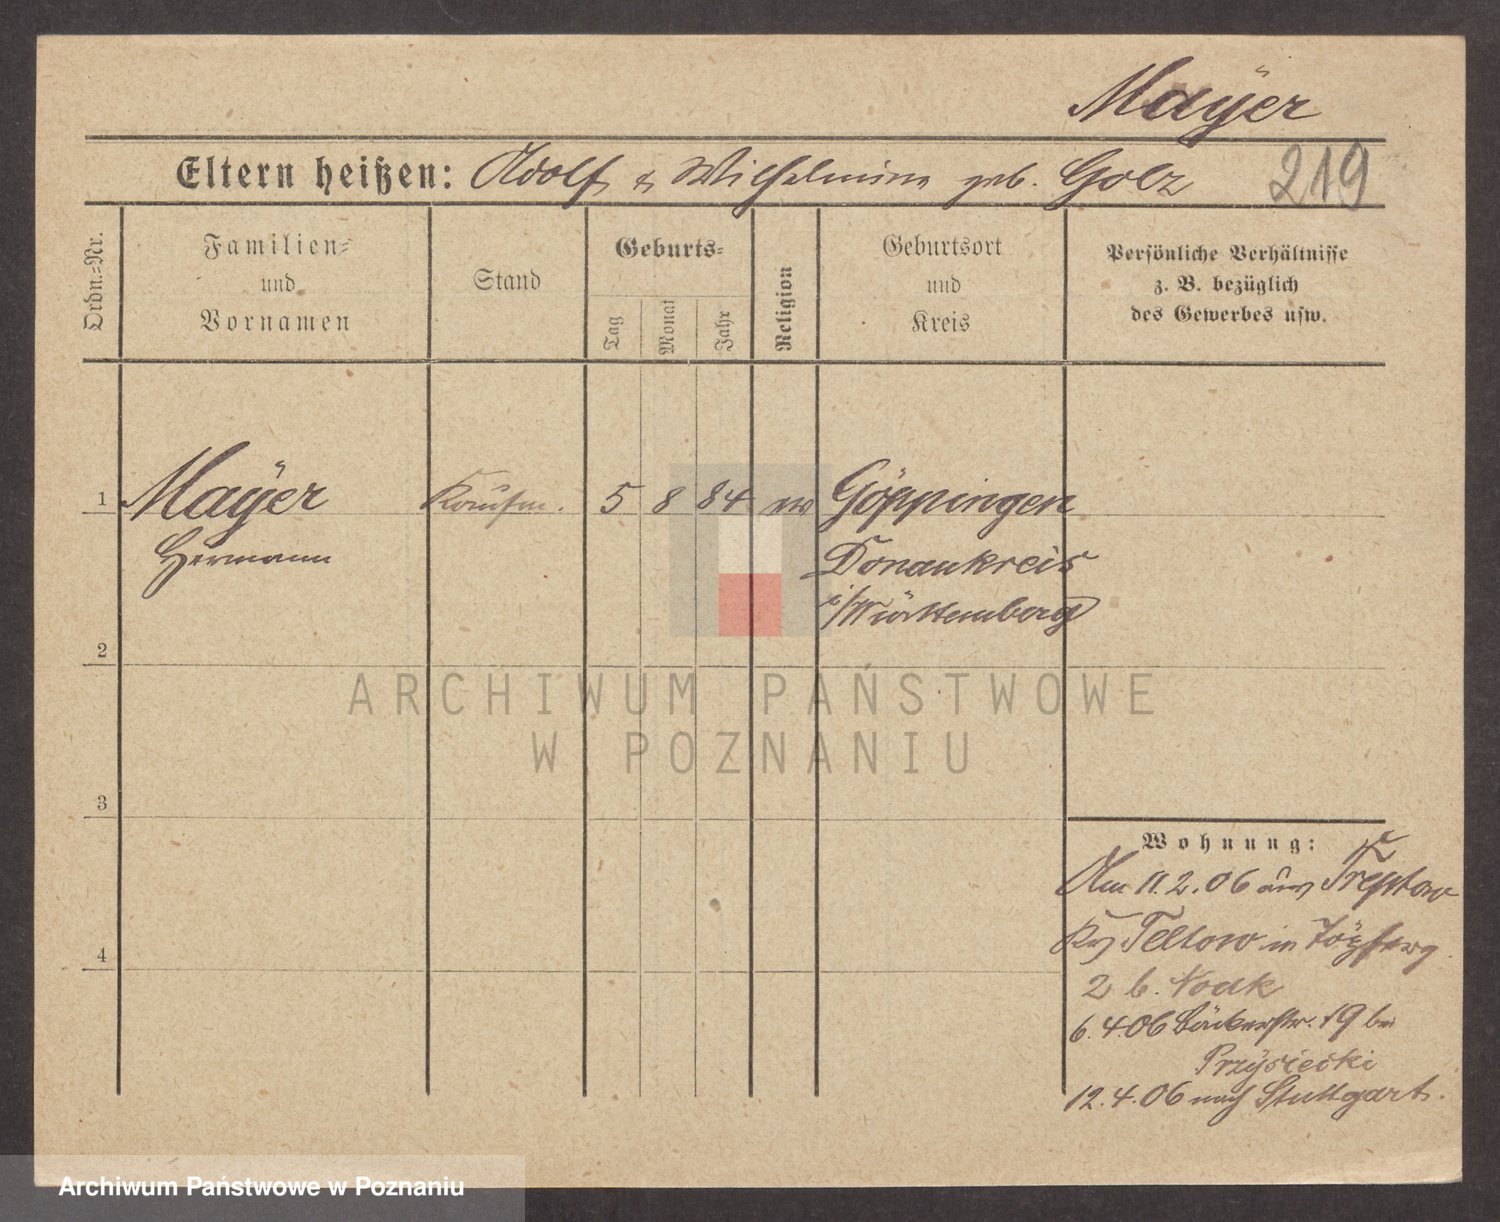 Mayer
Eltern heißen: Adolf & Wilhelmine geb. Golz 219
Ordn.=Nr.
Familien=
und
Vornamen
Stand
Geburts=
Tag
Monat
Jahr
Religion
Geburtsort
und
Kreis
Persönliche Verhältnisse
z. B. bezüglich
des Gewerbes usw.
1 Mayer Kaufm. 5 8 84 Göppingen
Hermann Donaukreis
i/Württemberg
2
ARCHIWUM PAŃSTWOWE
W POZNANIU
3
Wohnung:
Am 11.2.06 aus Treptow
Krs Teltow in
4
2 b. Noak
6.4.06 Bäckerstr. 19 bei
Przysiecki
12.4.06 nach Stuttgart.
Archiwum Państwowe w Poznaniu